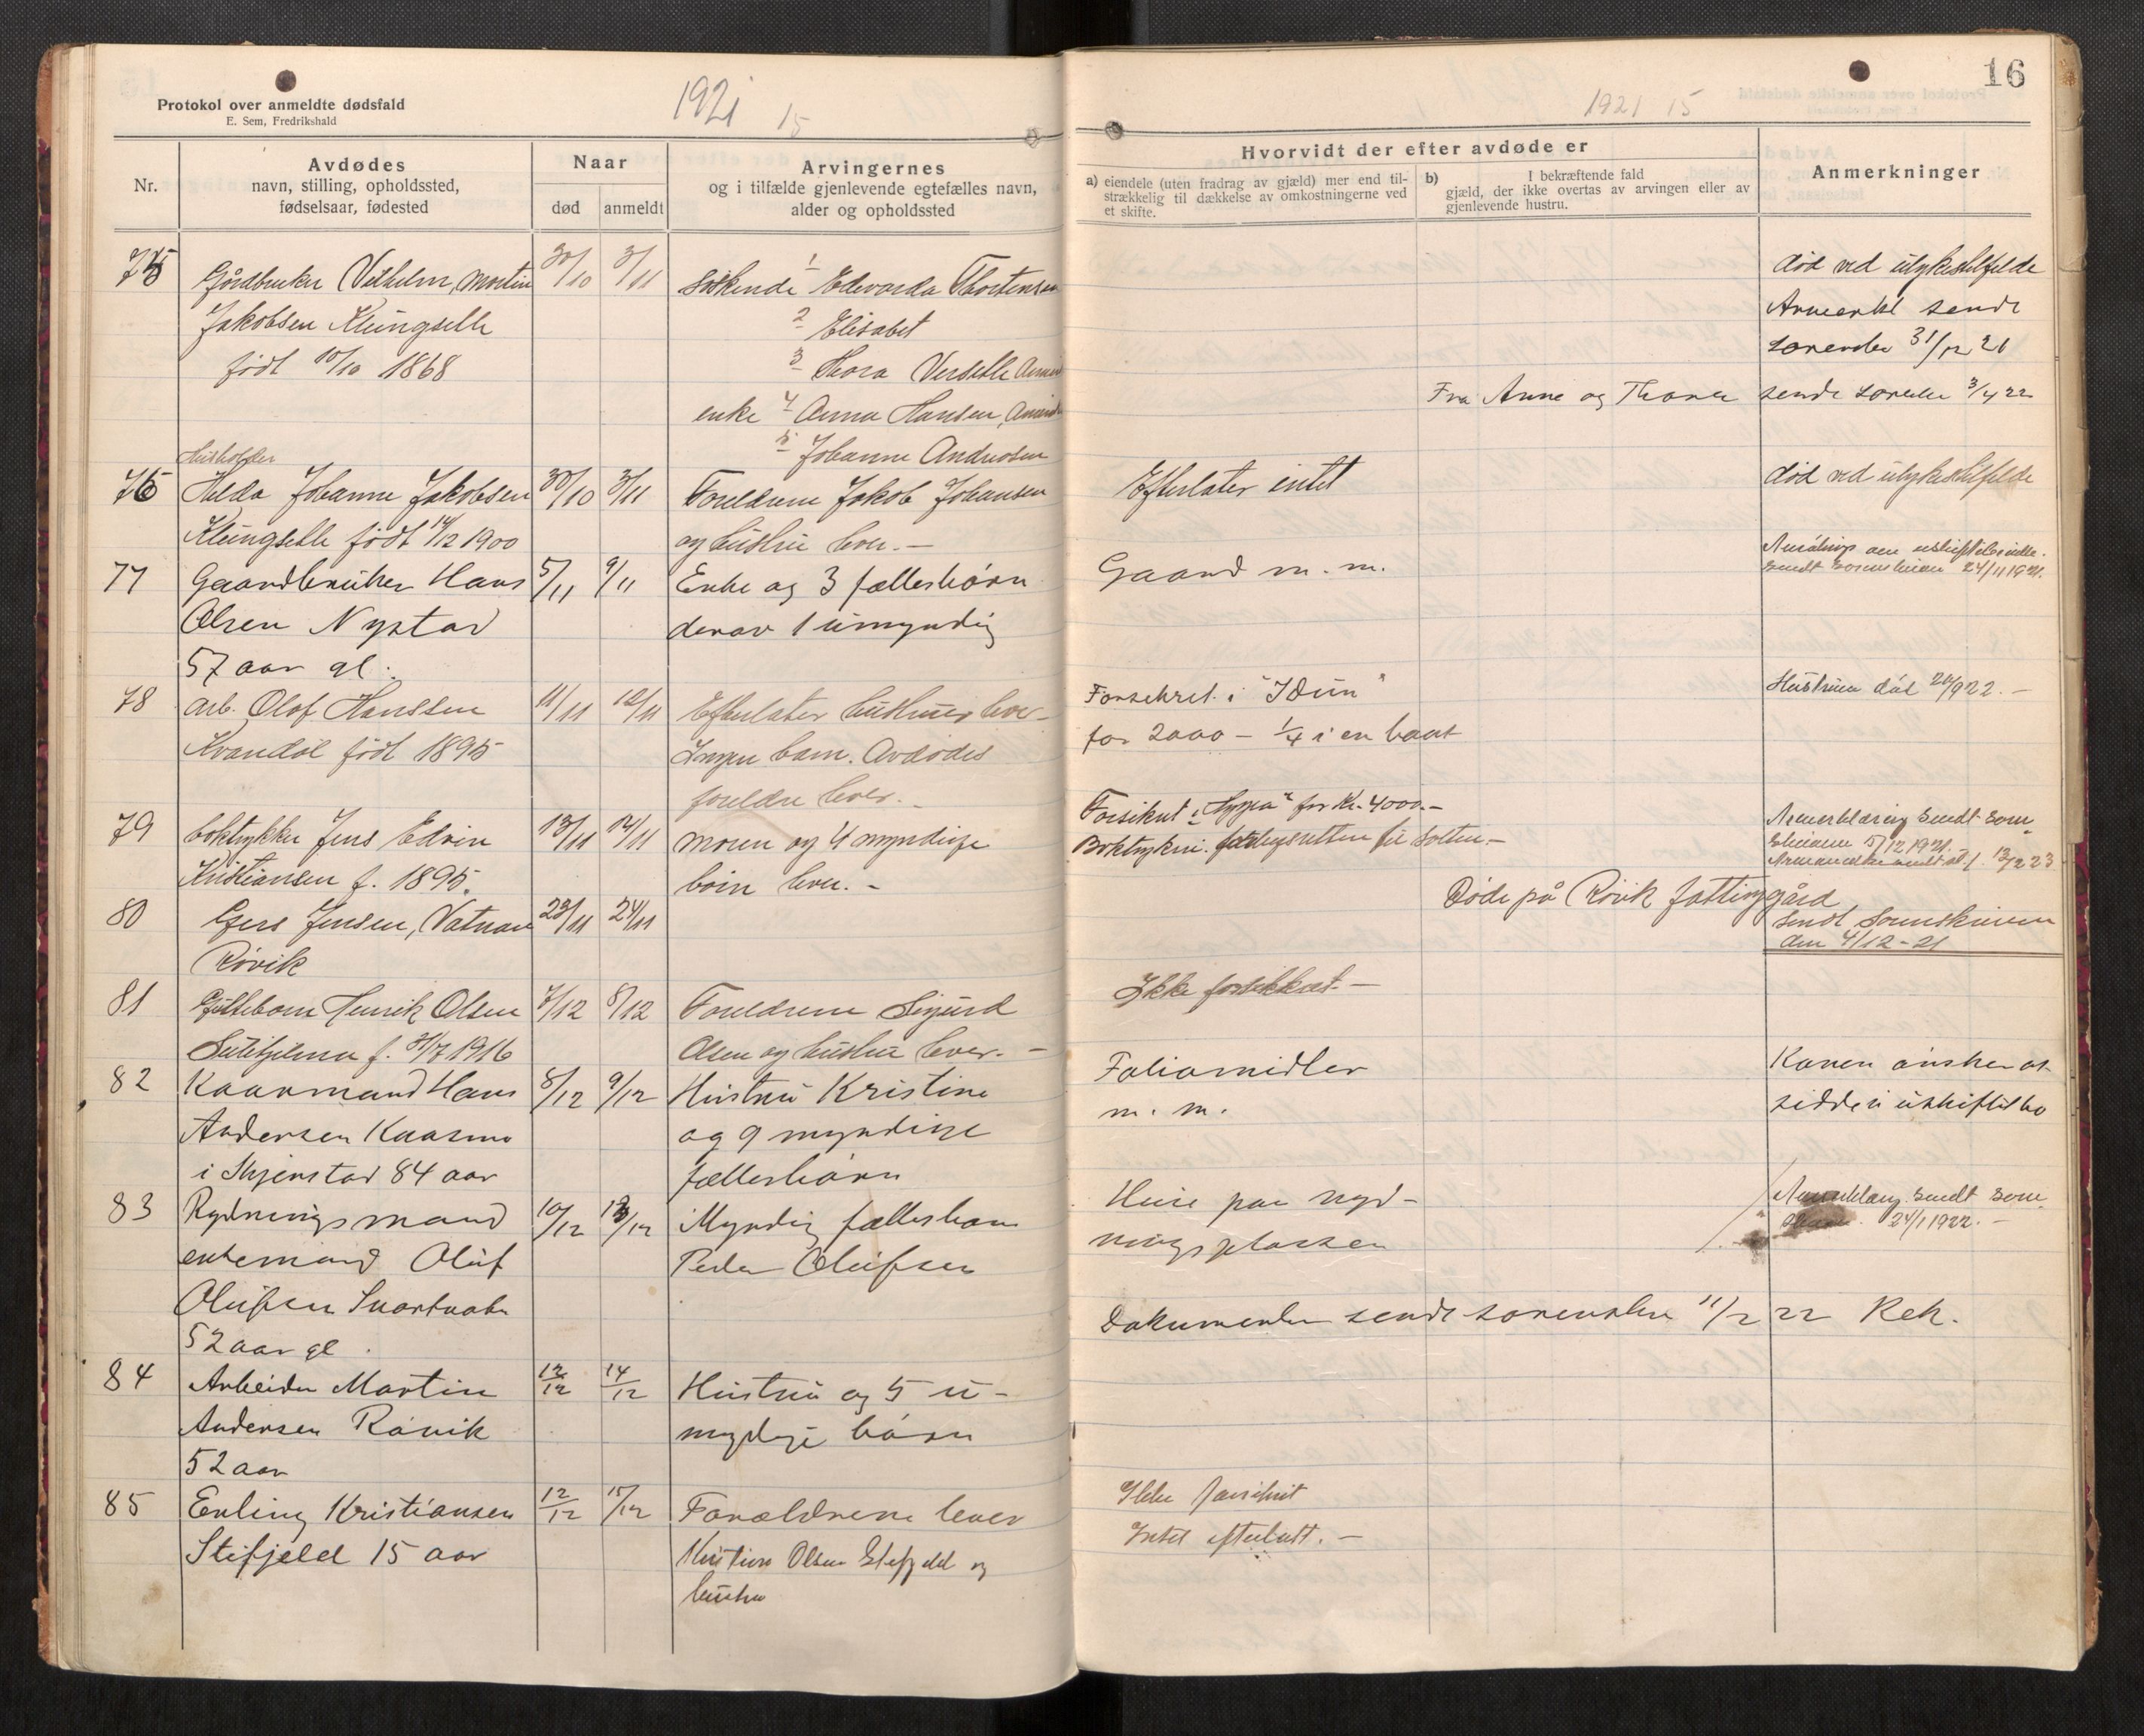 Protokol over anmeldte dødsfald
E. Sem, Fredrikshald
1921 15
Nr.
Avdødes
navn, stilling, opholdssted,
fødselsaar, fødested
Naar
død
anmeldt
Arvingernes
og i tilfælde gjenlevende egtefælles navn,
alder og opholdssted
75
Gårdbruker Vilhelm, Martin
Jakobsen Klungsett
født 10/10 1868
30/10
3/11
Søskende 1 Edvarda Thortensen
2 Elisabet
3 Thora
enke 4 Anna Hansen,
5 Johanne Andreasen
76
Husholder
Hilda Johanne Jakobsen
Klungsett født 14/12 1900
30/10
3/11
Foreldrene Jakob Johansen
og hustru lever. —
77
Gaardbruker Hans
Olsen Nystad
57 aar gl.
5/11
9/11
Enke og 3 fællesbørn
derav 1 umyndig
78
arb. Olof Hanssen
Kvandal født 1895
11/11
12/11
Efterlater hustruen lever
Ingen barn. Avdødes
foreldre lever. —
79
boktrykker Jens Edvin
Kristiansen f. 1895.
13/11
14/11
moren og 4 myndige
børn lever. -
80
Gjers Jensen, Vatnan
Røvik
23/11
24/11
81
Guttebarn Henrik Olsen
Sulitjelma f. 31/7 1916
7/12
8/12
Foreldrene Sigurd
Olsen og hustru lever. —
82
Kaarmand Hans
Andersen Kaasmo
i Skjerstad 84 aar
8/12
9/12
Hustru Kristine
og 9 myndige
fællesbørn
83
Rydningsmand
enkemand Oluf
Olufsen Svartvatn
52 aar gl.
10/12
13/12
Myndig fællesbarn
Peder Olufsen
84
Arbeider Martin
Andersen Røvik
52 aar
12/12
14/12
Hustru og 5 u-
mydige børn
85
Erling Kristiansen
Stifjeld 15 aar
12/12
15/12
Forældrene lever
Kristian Olsen Stifjeld og
hustru
16
1921 15
Hvorvidt der efter avdøde er
a) eiendele (uten fradrag av gjæld) mer end til-
strækkelig til dækkelse av omkostningerne ved
et skifte.
b) I bekræftende fald
gjæld, der ikke overtas av arvingen eller av
gjenlevende hustru.
Anmerkninger
død ved ulykkestilfelde
sendt
sorenskr 31/12 21
Fra Anne og Thora sendt sorenskr 3/4 22
Efterlater intet
død ved ulykkestilfelde
Gaard m. m.
24/11 1921.
Forsekret i "Idun"
for 2000 — 1/4 i en baat
Hustruen død 20/9 22. —
Forsikret i for Kr. 4000.—
Anmerklæring sendt soren
5/12 1921.
13/2 23
Døde på Røvik fattiggård
sendt Sorenskriveren
den 4/12-21
Ikke forsikkret. —
Foliomidler
m. m.
Konen ønsker at
sidde i uskiftet bo
Huse paa ryd-
ningsplassen
sendt soren
24/1 1922. —
Dokumenter sendt sorenskr 11/2 22 Rek.
Ikke forsikret
Intet efterlatt. —